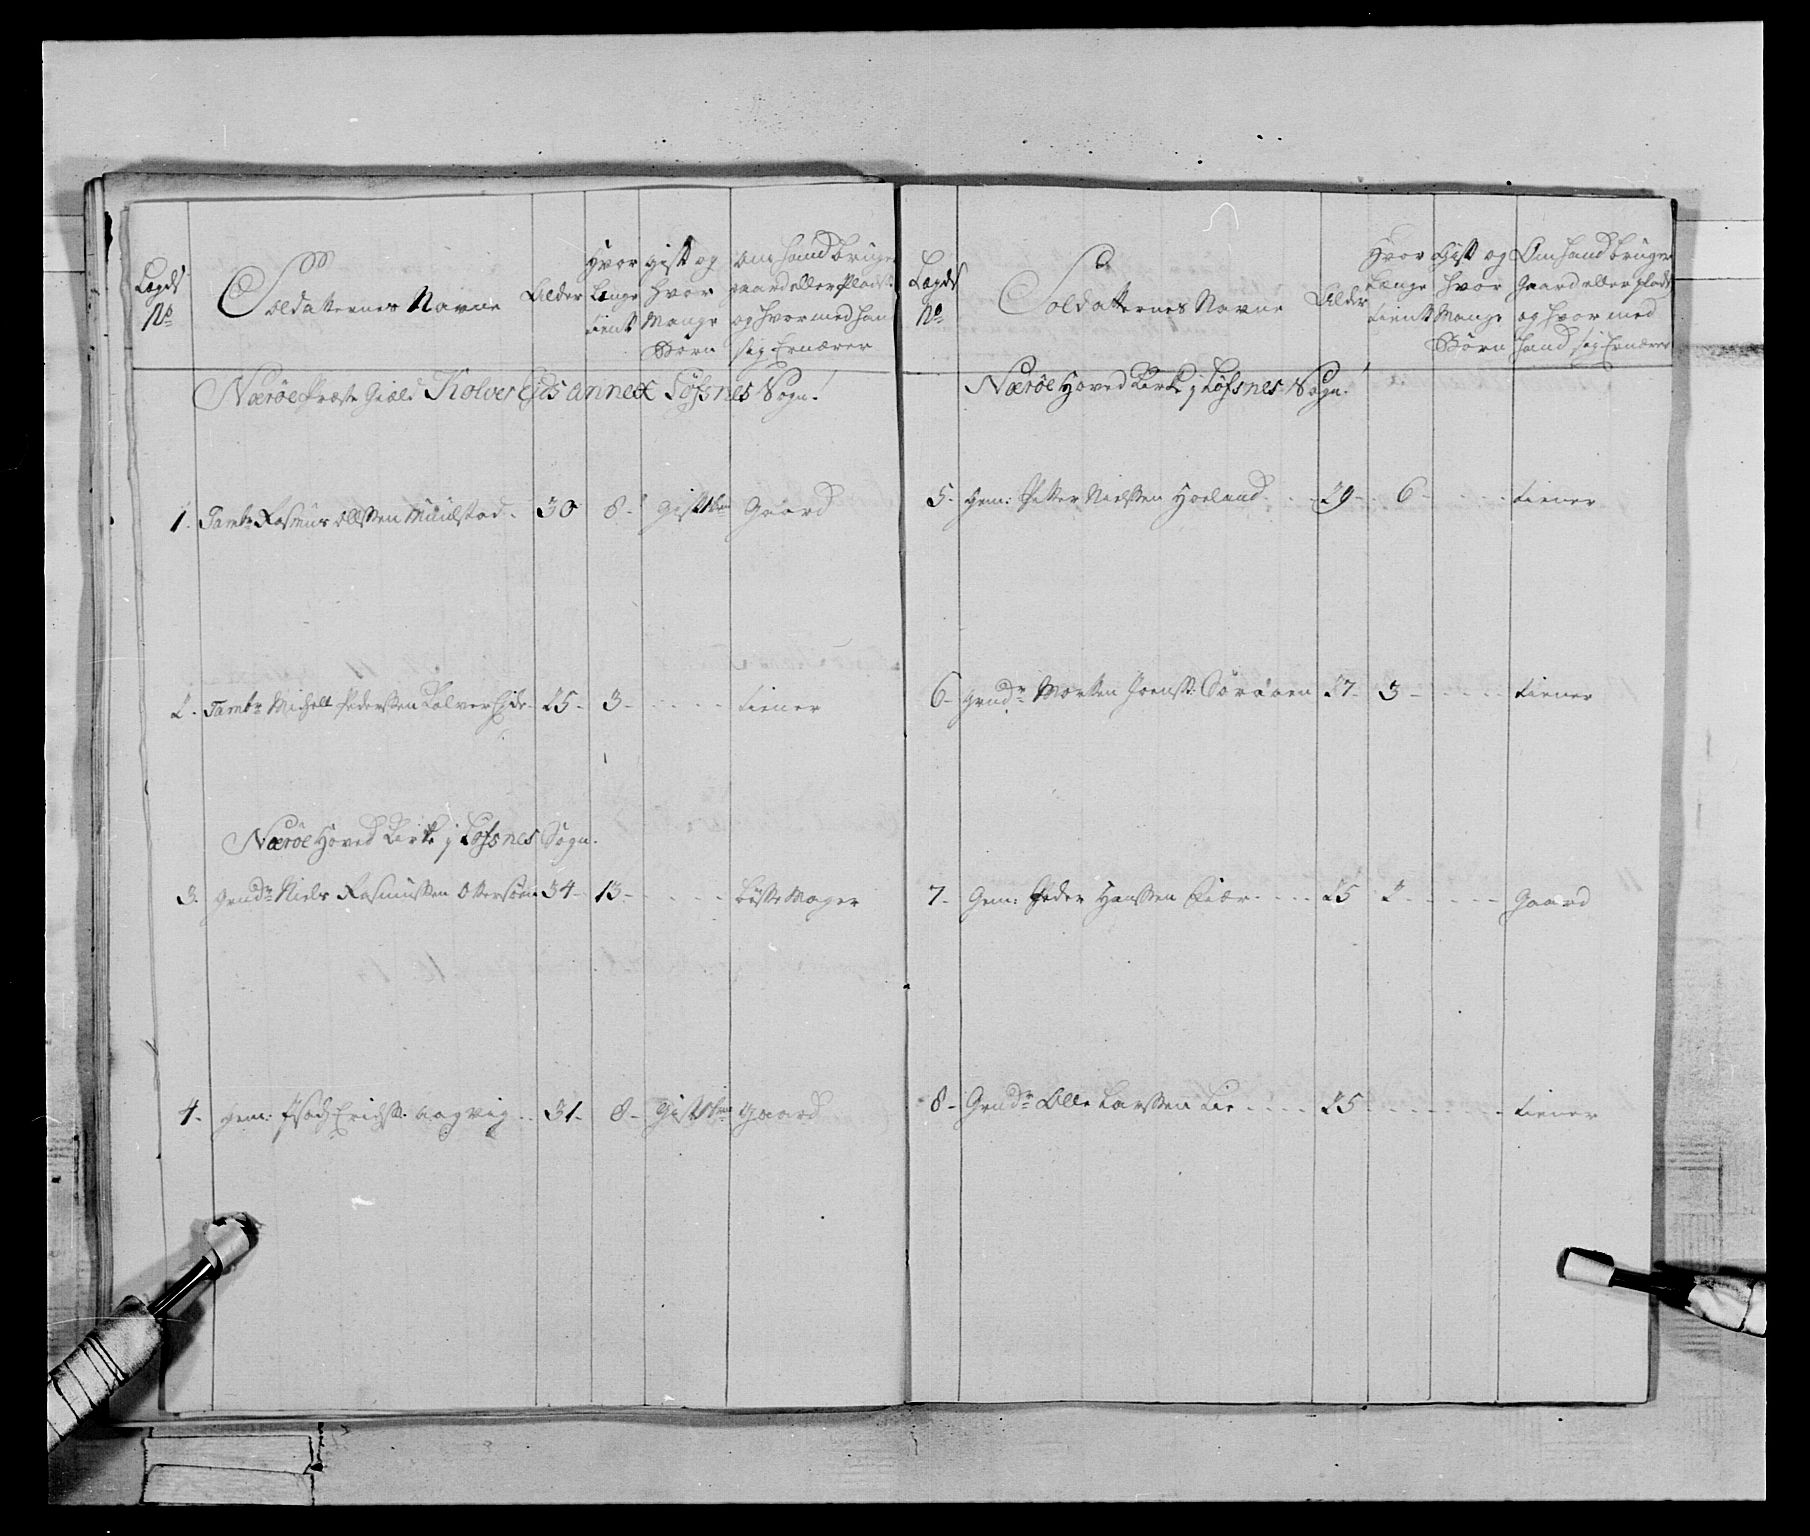 Legds No
Soldatternes Navne
Alder
Hvor Længe tient
gift og hvor Mange Børn
om hand bruger gaard eller Plads og hvor med han sig Ernærer
Nærøe Præste Giæld Kolver Eids annex Føsnes Sogn.
1. Tambr Rasmus Ollssen Muulstad. 30 8- gift 1 barn Gaard
2. Tambr Michell Pederssen Kolver Eide 25- 3- tiener
Nærøe Hoved Kirke j Føsnes Sogn.
3. Grndr Niels Rasmussen Ottersøen 34- 13- bøsse Mager
4. gem: Isach Erichss. Aagvig 31- 8- Gift 1 barn gaard
Legds No
Soldatternes Navne
Alder
Hvor Længe tient
Gift og hvor Mange Børn
Om hand bruger Gaard eller plads og hvor med hand sig Ernærer
Nærøe Hoved Kirke j Føsnes Sogn.
5. gem: Petter Nielssen Horland 29- 6- tiener
6- grndr Morten Joenss: Sørøen 27- 3- tiener
7- Gem: Peder Hanssen 25 2- Gaard
8- Grndr Olle Larssen Lie 25 tiener